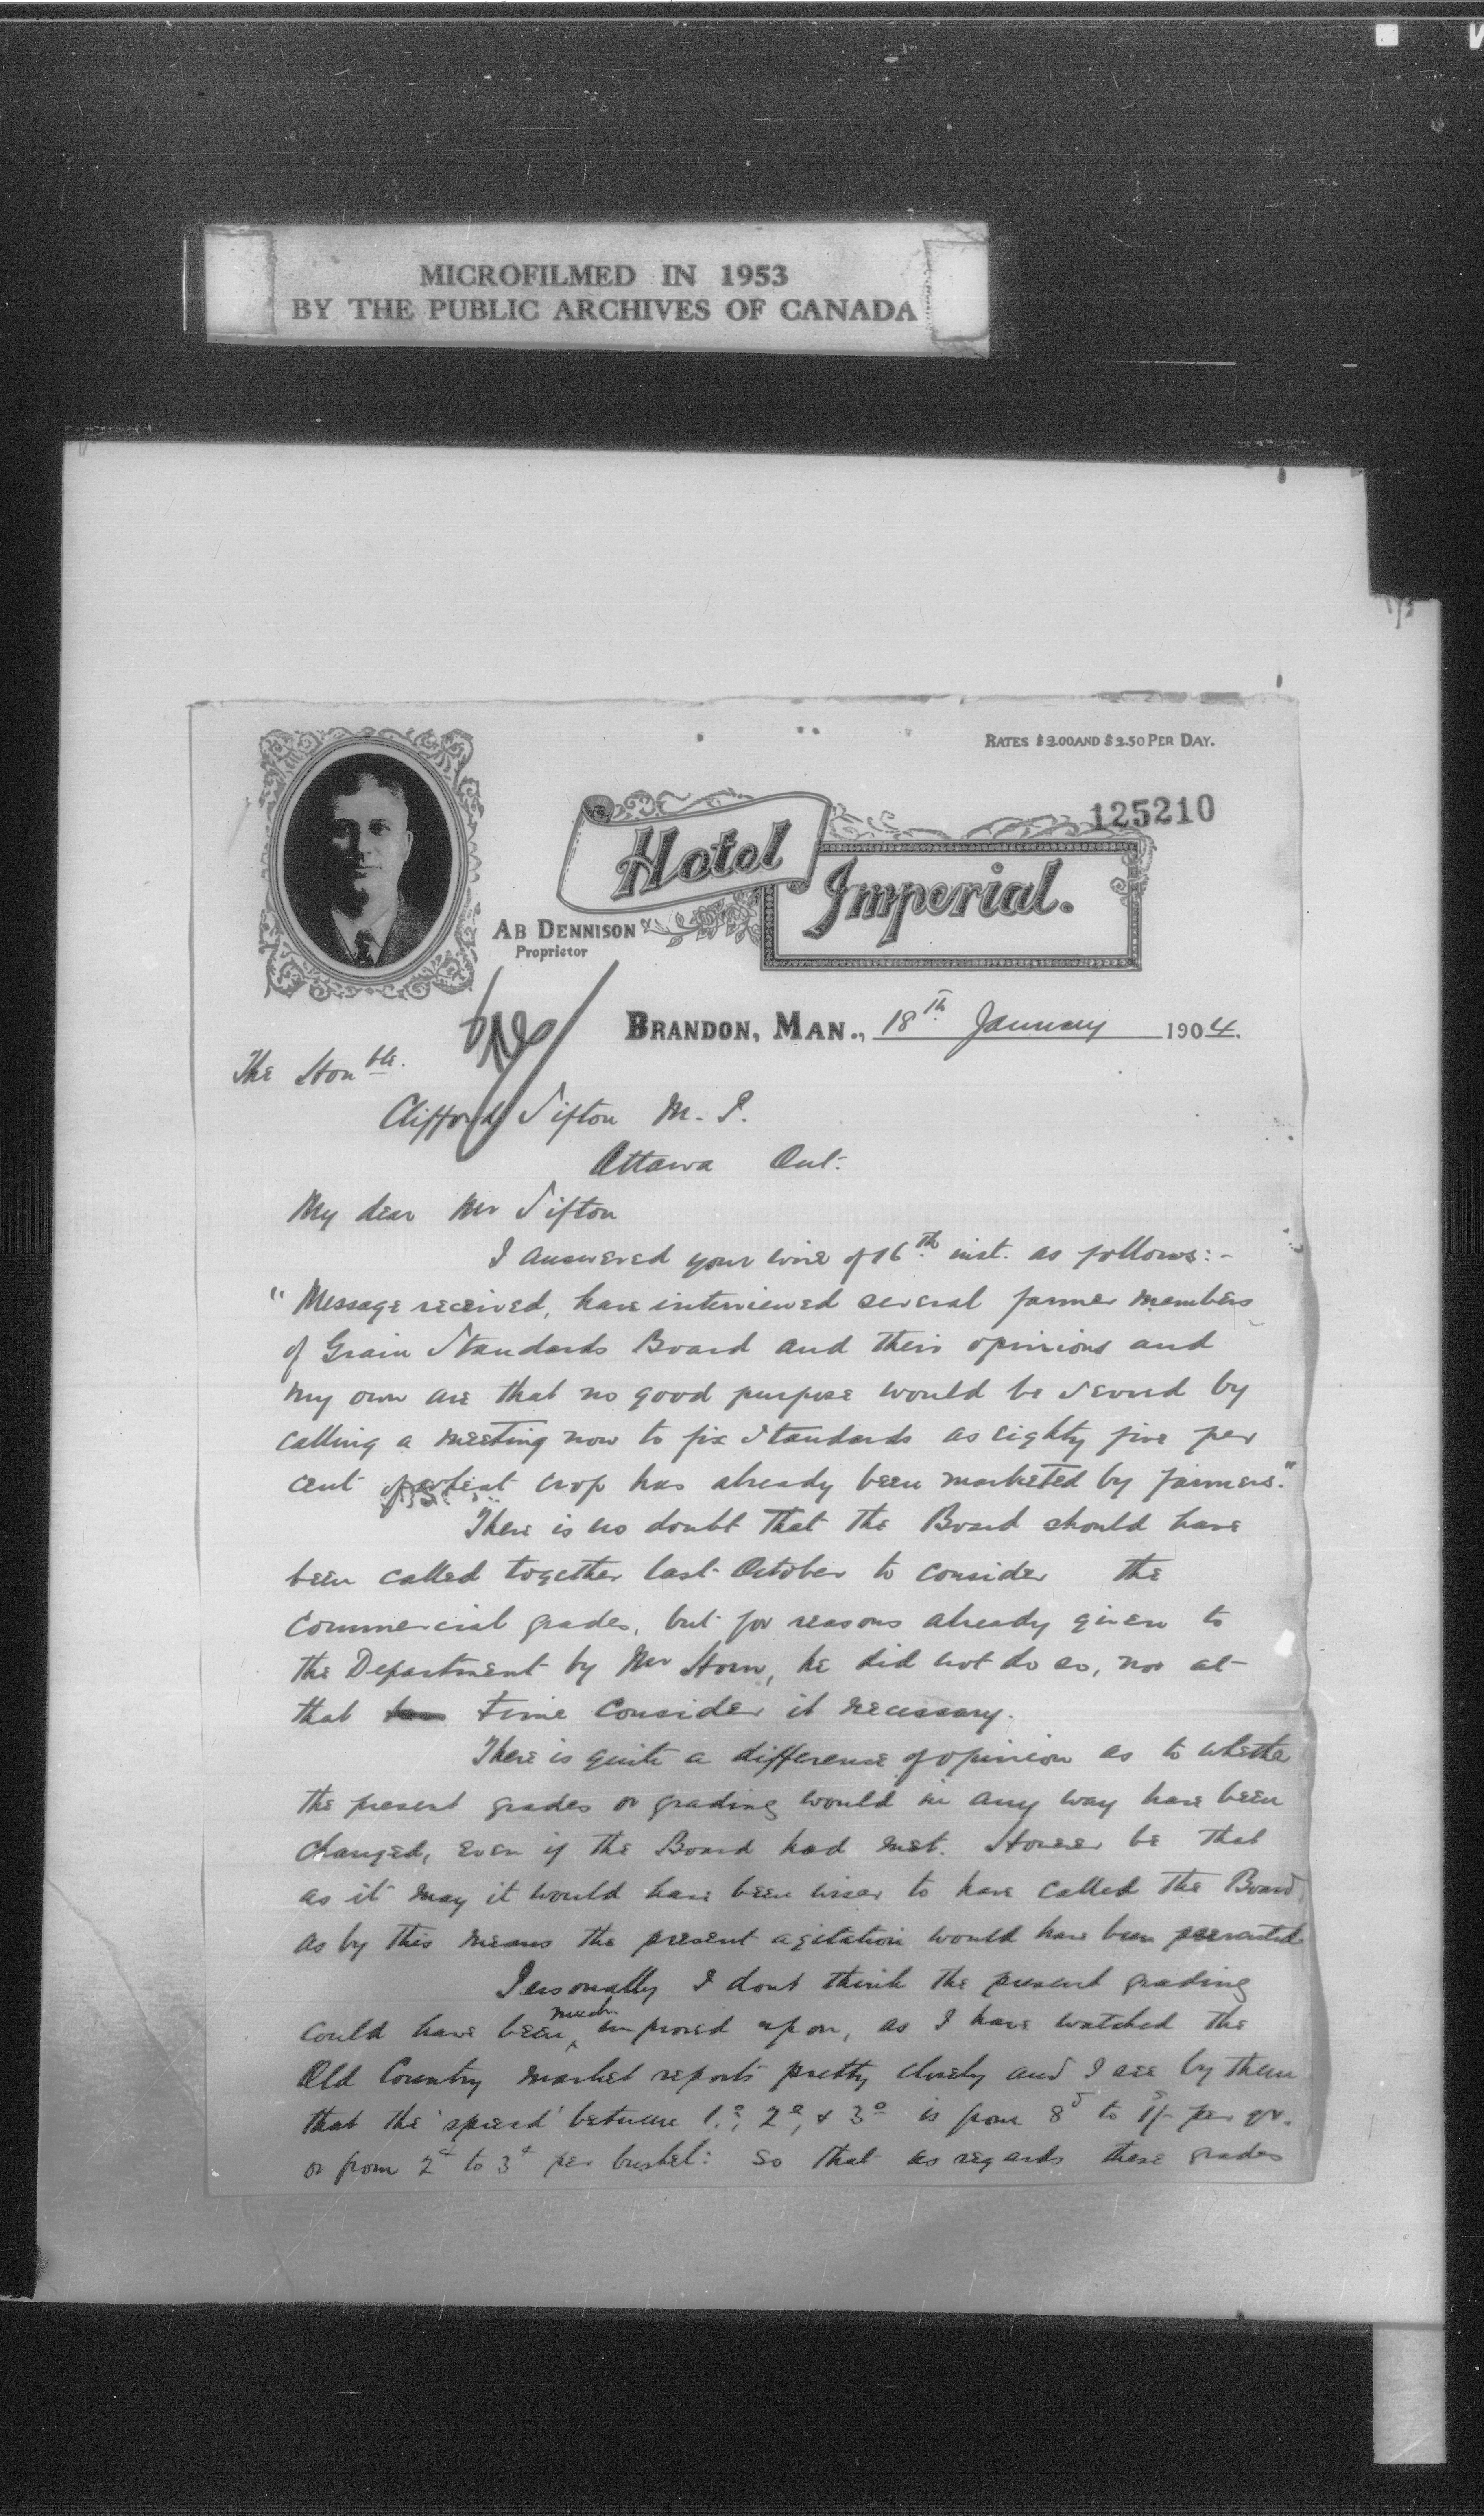 MICROFILMED IN 1953
BY THE PUBLIC ARCHIVES OF CANADA
RATES $2.00 AND $2.50 PER DAY.
125210
Hotel Imperial.
AB DENNISON
Proprietor
BRANDON, MAN., 18th January 1904.
The Honble.
Clifford Sifton M. P.
Ottawa Ont.
My dear Mr Sifton
I answered your wire of 16th inst. as follows:-
"Message received, have interviewed several farmer members
of Grain Standards Board and their opinions and
my own are that no good purpose would be served by
calling a meeting now to fix standards as eighty five per
cent of wheat crop has already been marketed by farmers."
There is no doubt that the Board should have
been called together last October to consider the
commercial grades, but for reasons already given to
the Department by Mr Horn, he did not do so, nor at
that time consider it necessary.
There is quite a difference of opinion as to whether
the present grades or grading would in any way have been
changed, even if the Board had met. However be that
as it may it would have been wiser to have called the Board
as by this means the present agitation would have been prevented
Personally I dont think the present grading
could have been much improved upon, as I have watched the
Old Country market reports pretty closely and I see by them
that the 'spread' between 1o, 2o, & 3o is from 8d to 1/- per qr.
or from 2¢ to 3¢ per bushel: so that as regards these grades